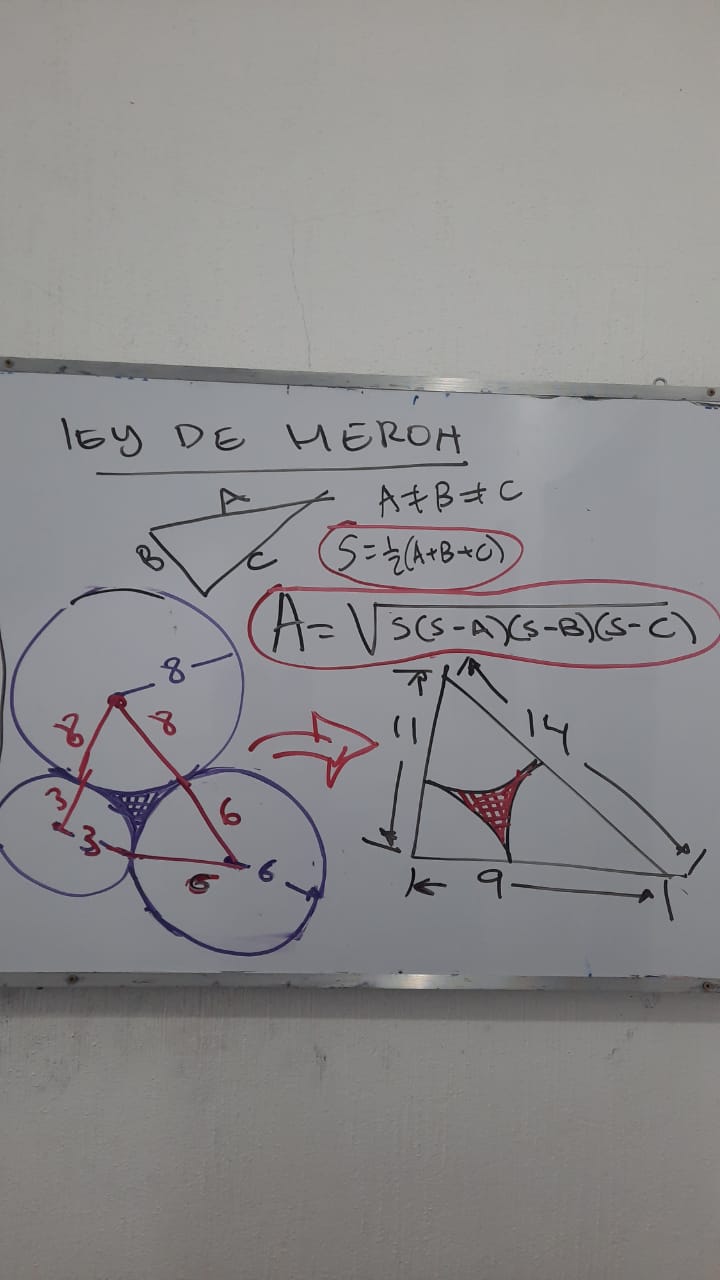 LEY DE HEROH
A
B
C
A≠B≠C
S=½(A+B+C)
A=√S(S-A)(S-B)(S-C)
8
8
8
3
3
6
6
6
11
14
9